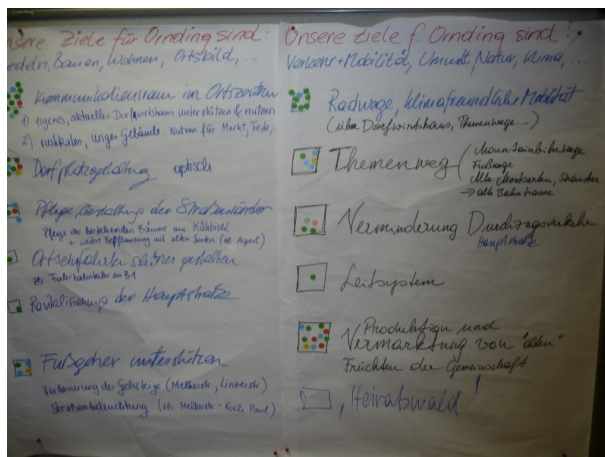 nsere Ziele für Ornding sind:
edeln, Bauen, Wohnen, Ortsbild, ...
Kommunikationsraum im Ortszentrum
1) eigenes, aktuelles Dorfwirtshaus unterstützen & nutzen
2) rustikalen, urigen Gebäude nutzen für Markt, Feste,
Dorfplatzgestaltung optisch
Pflege, Gestaltung der Straßenränder
Pflege der bestehenden Bäume am
+ weitere Bepflanzung mit alten Sorten (zB
Ortseinfahrten schöner gestalten
zB. Fahrbahnteiler an B1
Revitalisierung der Hauptstraße
Fußgeher unterstützen
Verbesserung der Gehsteige (Melkerstr., Linzerstr.)
Straßenbeleuchtung (zB Melkerstr - Koch Paul)
Unsere Ziele f. Ornding sind:
Verkehr + Mobilität, Umwelt, Natur, Klima, ....
Radwege, klimafreundliche Mobilität
(über Dorfwirtshaus, Themenwege ...)
Themenweg
Mountainbikewege
Fußwege
Alte Sträucher
→ alte Bahntrasse
Verminderung Durchzugsverkehr
Hauptstraße
Leitsystem
Produktion und
Vermarktung von "alten"
Früchten der Gemeinschaft
"Heiratswald"!